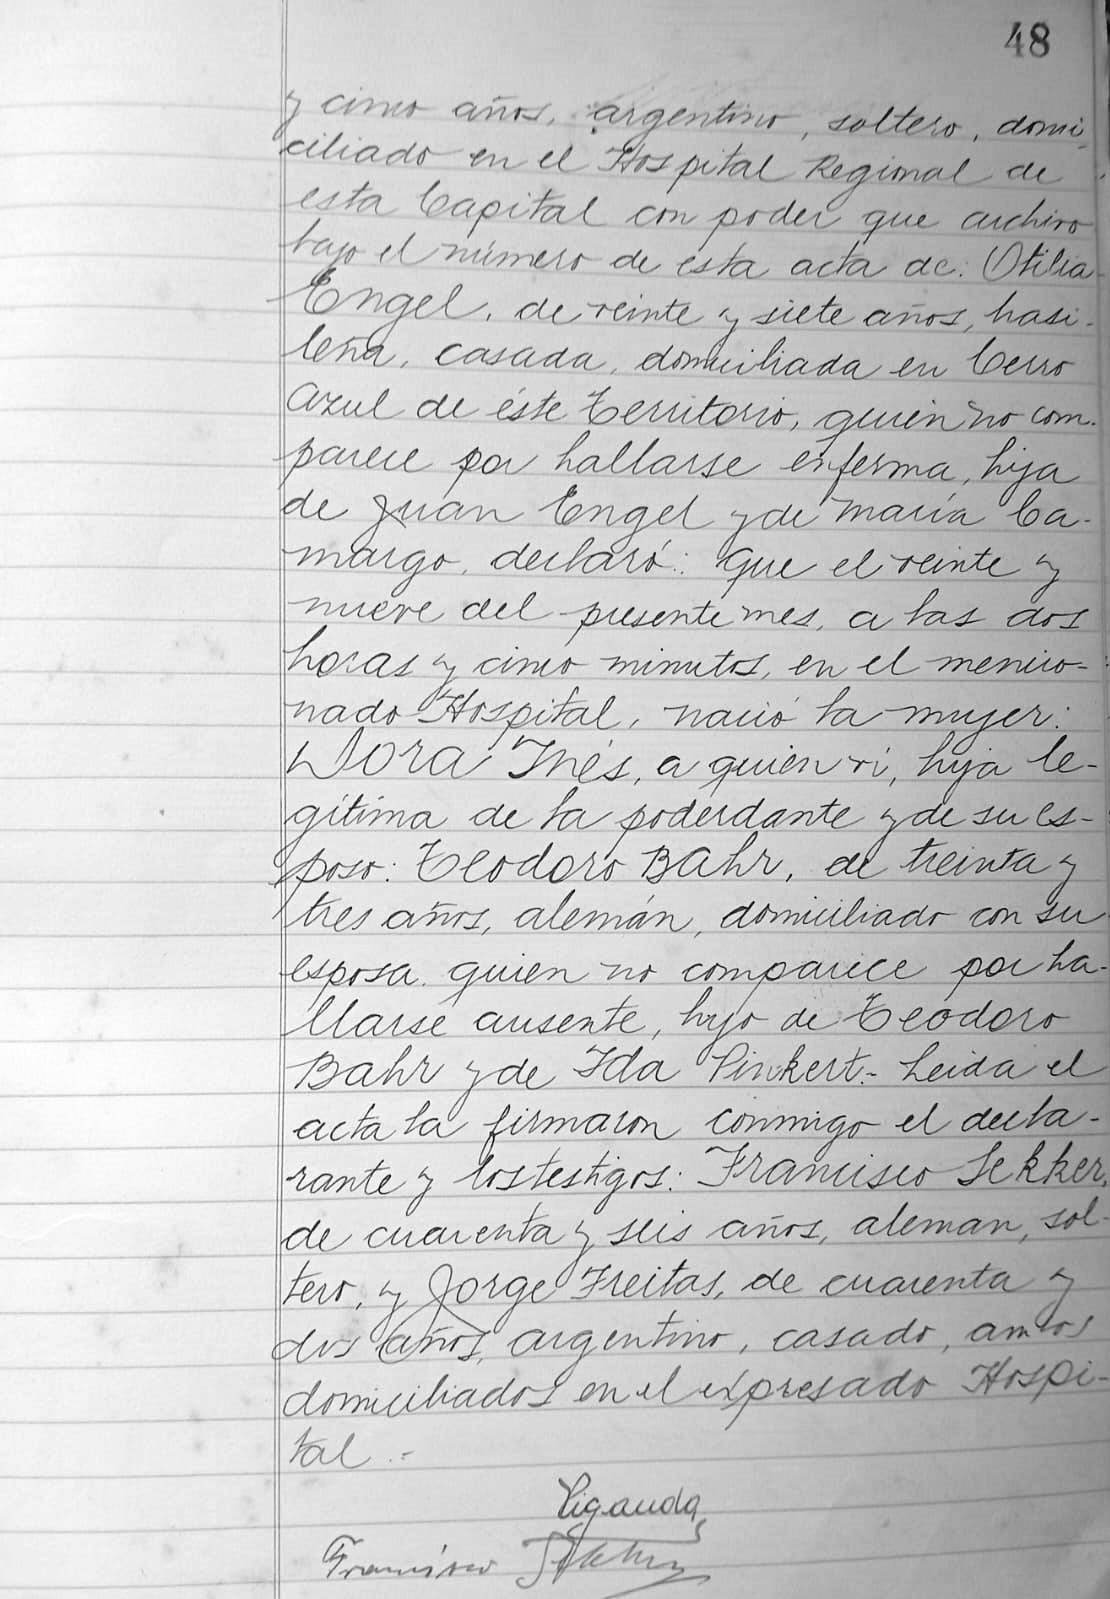 48
y cinco años, argentino, soltero, domi-
ciliado en el Hospital Regional de
esta Capital con poder que archivo
bajo el número de ésta acta de: Otilia
Engel, de veinte y siete años, brasi-
leña, casada, domiciliada en Cerro
Azul de éste Territorio, quien no com-
parece por hallarse enferma, hija
de Juan Engel y de María Ca-
margo, declaró: Que el veinte y
nueve del presente mes, a las dos
horas y cinco minutos, en el mencio-
nado Hospital, nació la mujer:
Dora Inés, a quien vi, hija le-
gítima de la poderdante y de su es-
poso: Teodoro Bahr, de treinta y
tres años, alemán, domiciliado con su
esposa, quien no comparece por ha-
llarse ausente, hijo de Teodoro
Bahr y de Ida Pinkert.- Leida el
acta la firmaron conmigo el decla-
rante y los testigos: Francisco Sekker,
de cuarenta y seis años, aleman, sol-
tero, y Jorge Freitas, de cuarenta y
dos años, argentino, casado, ambos
domiciliados en el expresado Hospi-
tal.-
Francisco